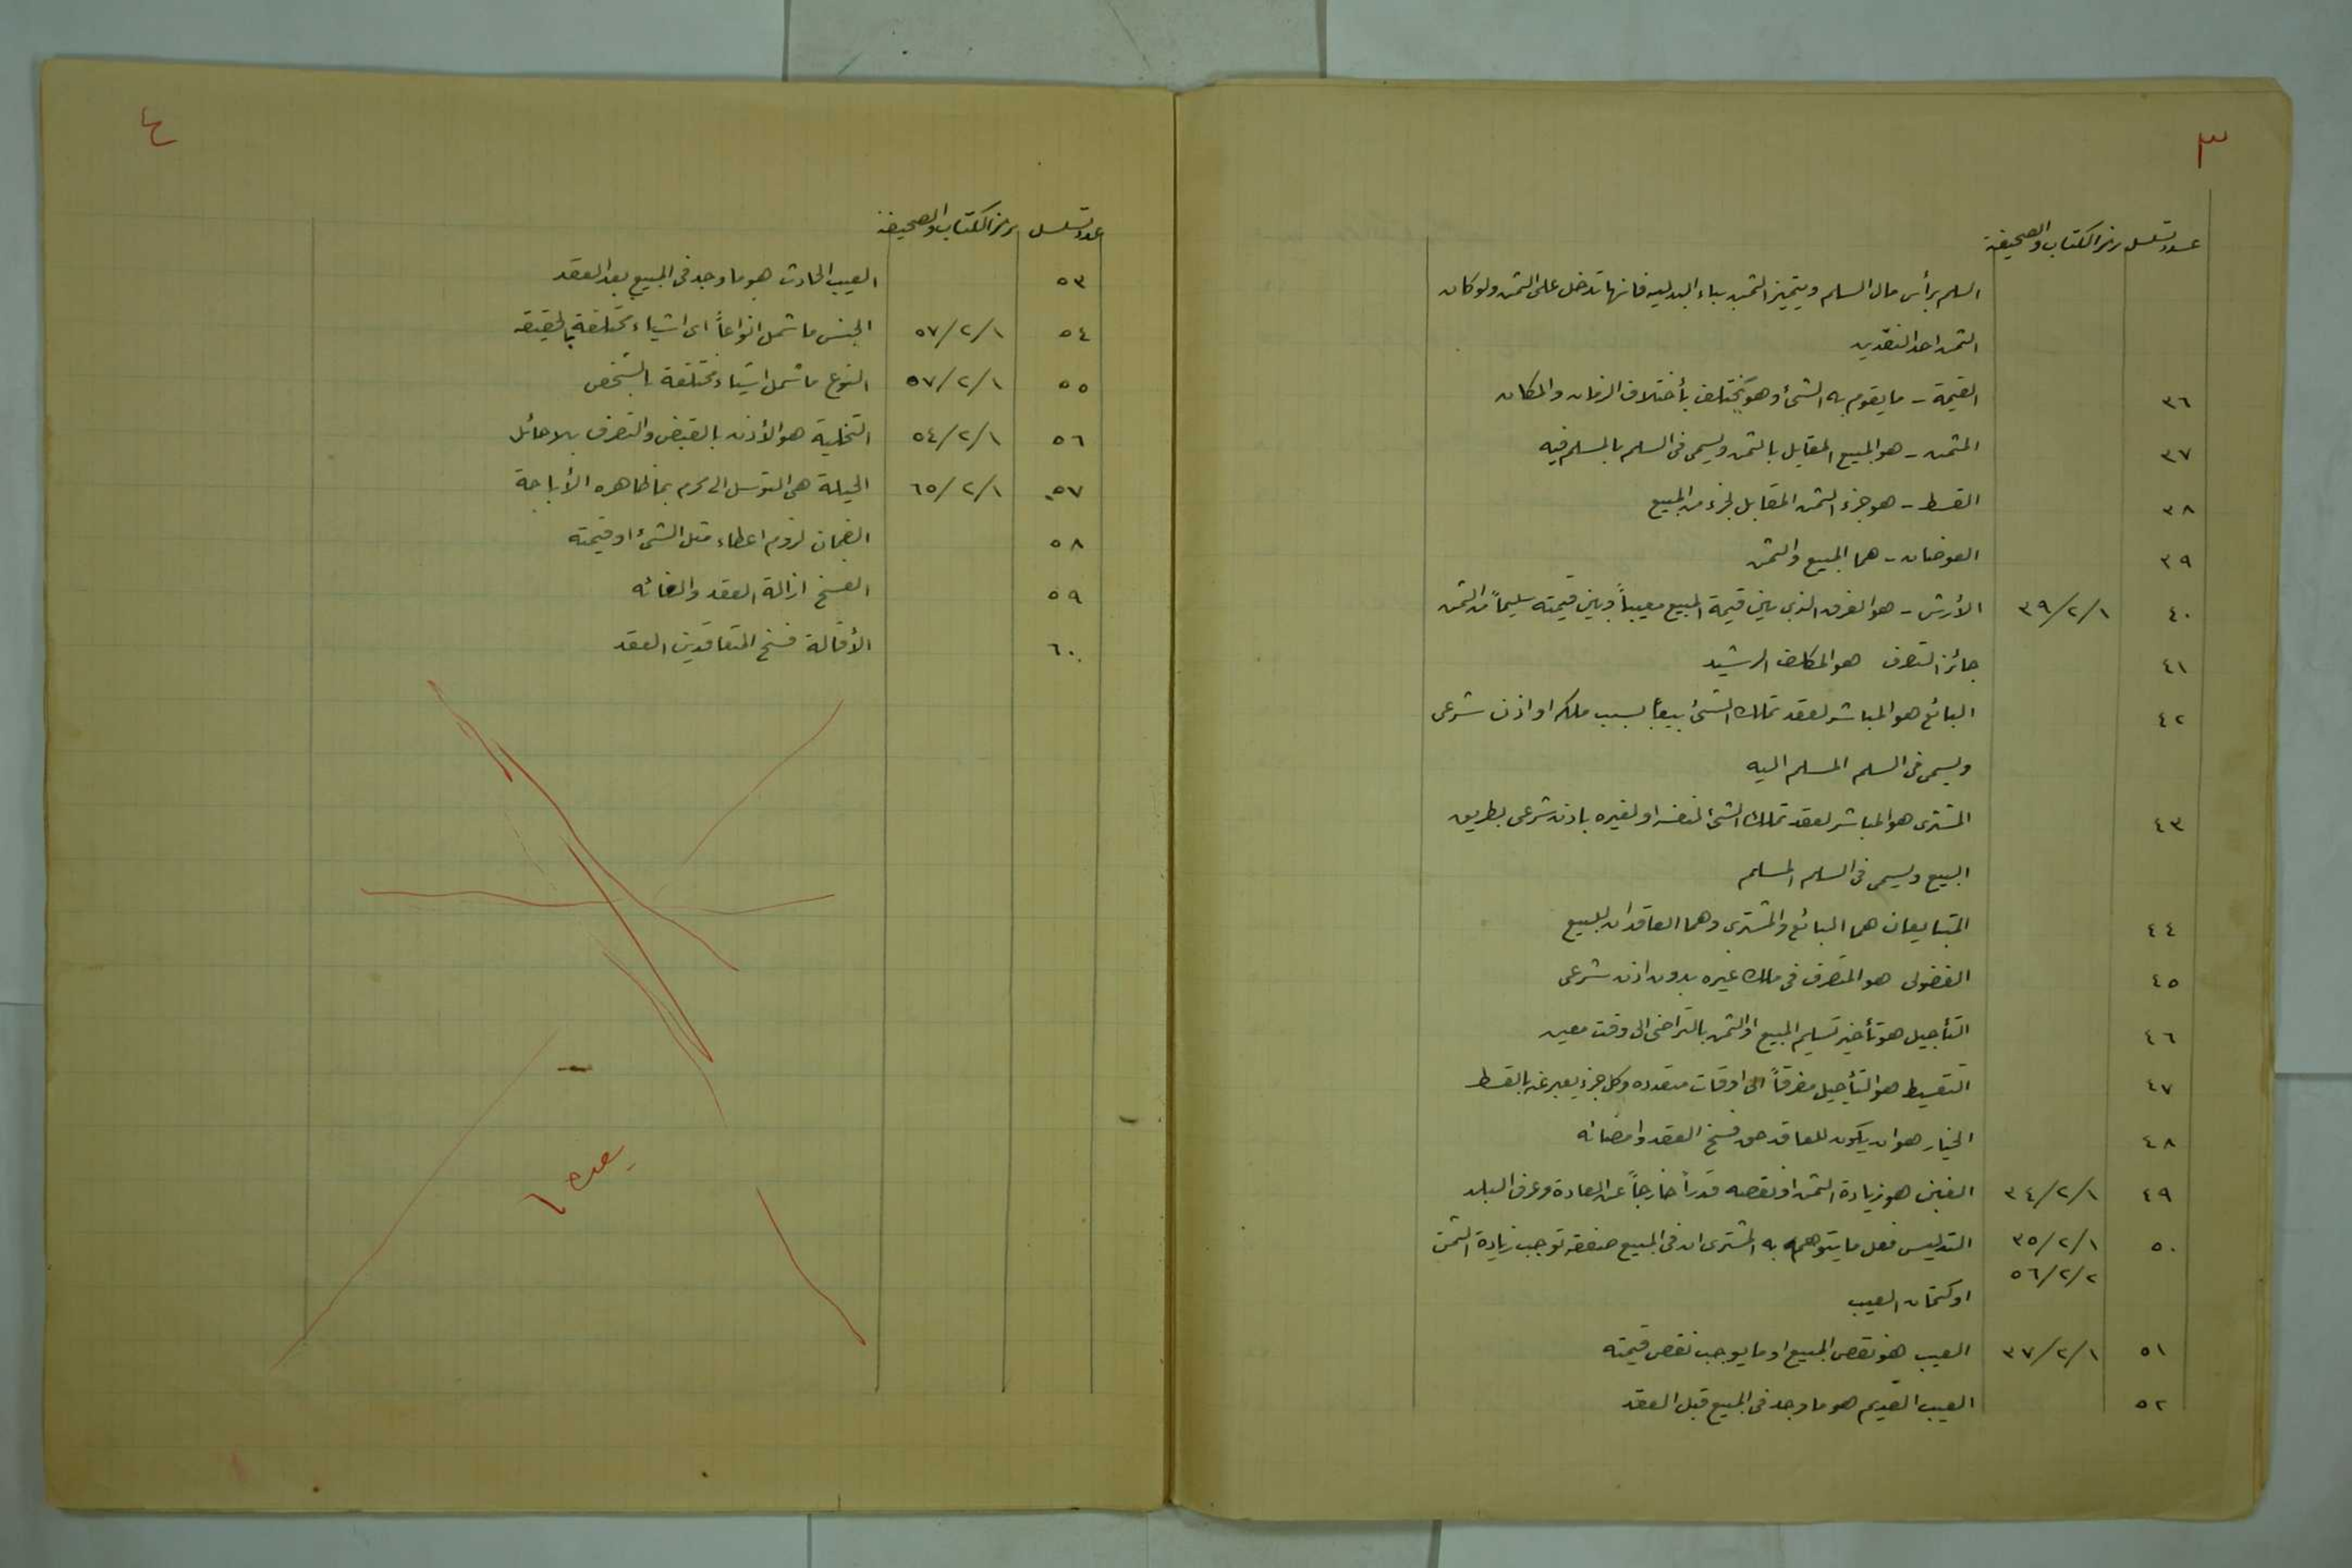 ٣
عدد تسلسل رمز الكتاب والصحيفة
السلم برأس مال السلم ويتميز الثمن بباء البدلية فانها تدخل على الثمن ولو كان
الثمن احد النقدين
٣٦ القيمة - ما يقوم به الشئ وهو يختلف بأختلاف الزمان والمكان
٣٧ المثمن - هو المبيع المقابل بالثمن ويسمى في السلم بالمسلم فيه
٣٨ القسط - هو جزء الثمن المقابل لجزء من المبيع
٣٩ العوضان - هما المبيع والثمن
٤٠ ٣٩/٢/١ الأرش - هو الفرق الذي بين قيمة المبيع معيباً وبين قيمته سليماً من الثمن
٤١ جائز التصرف هو المكلف الرشيد
٤٢ البائع هو المباشر لعقد تملك الشئ بيعاً بسبب ملكه او اذن شرعي
ويسمى في السلم المسلم اليه
٤٣ المشتري هو المباشر لعقد تملك الشئ لنفسه او لغيره باذن شرعي بطريق
البيع ويسمى في السلم المسلم
٤٤ المتبايعان هما البائع والمشتري وهما العاقدان للبيع
٤٥ الفضولي هو المتصرف في ملك غيره بدون اذن شرعي
٤٦ التأجيل هو تأخير تسليم المبيع او الثمن بالتراضي الى وقت معين
٤٧ التقسيط هو التأجيل مفرقاً الى اوقات متعدده وكل جزء يعبر عنه بالقسط
٤٨ الخيار هو ان يكون للعاقد حق فسخ العقد وامضائه
٤٩ ٣٤/٢/١ الغبن هو زيادة الثمن او نقصه قدراً خارجاً عن العادة وعرف البلد
٥٠ ٣٥/٢/١ التدليس فعل ما يتوهم به المشتري ان في المبيع صفة توجب زيادة الثمن
٥٦/٢/٢
او كتمان العيب
٥١ ٣٧/٢/١ العيب هو نقص المبيع او ما يوجب نقص قيمته
٥٢ العيب القديم هو ما وجد في المبيع قبل العقد
٤
عدد تسلسل رمز الكتاب والصحيفة
٥٣ العيب الحادث هو ما وجد في المبيع بعد العقد
٥٤ ٥٧/٢/١ الجنس ما شمل انواعاً اى اشياء مختلفة بالحقيقه
٥٥ ٥٧/٢/١ النوع ما شمل اشياء مختلفة بالشخص
٥٦ ٥٤/٢/١ التخلية هو الأذن بالقبض والتصرف بلا حائل
٥٧ ٦٥/٢/١ الحيلة هي التوسل الى محرم بما ظاهره الأباحة
٥٨ الضمان لزوم اعطاء مثل الشئ او قيمته
٥٩ الفسخ ازالة العقد والغائه
٦٠ الأقالة فسخ المتعاقدين العقد